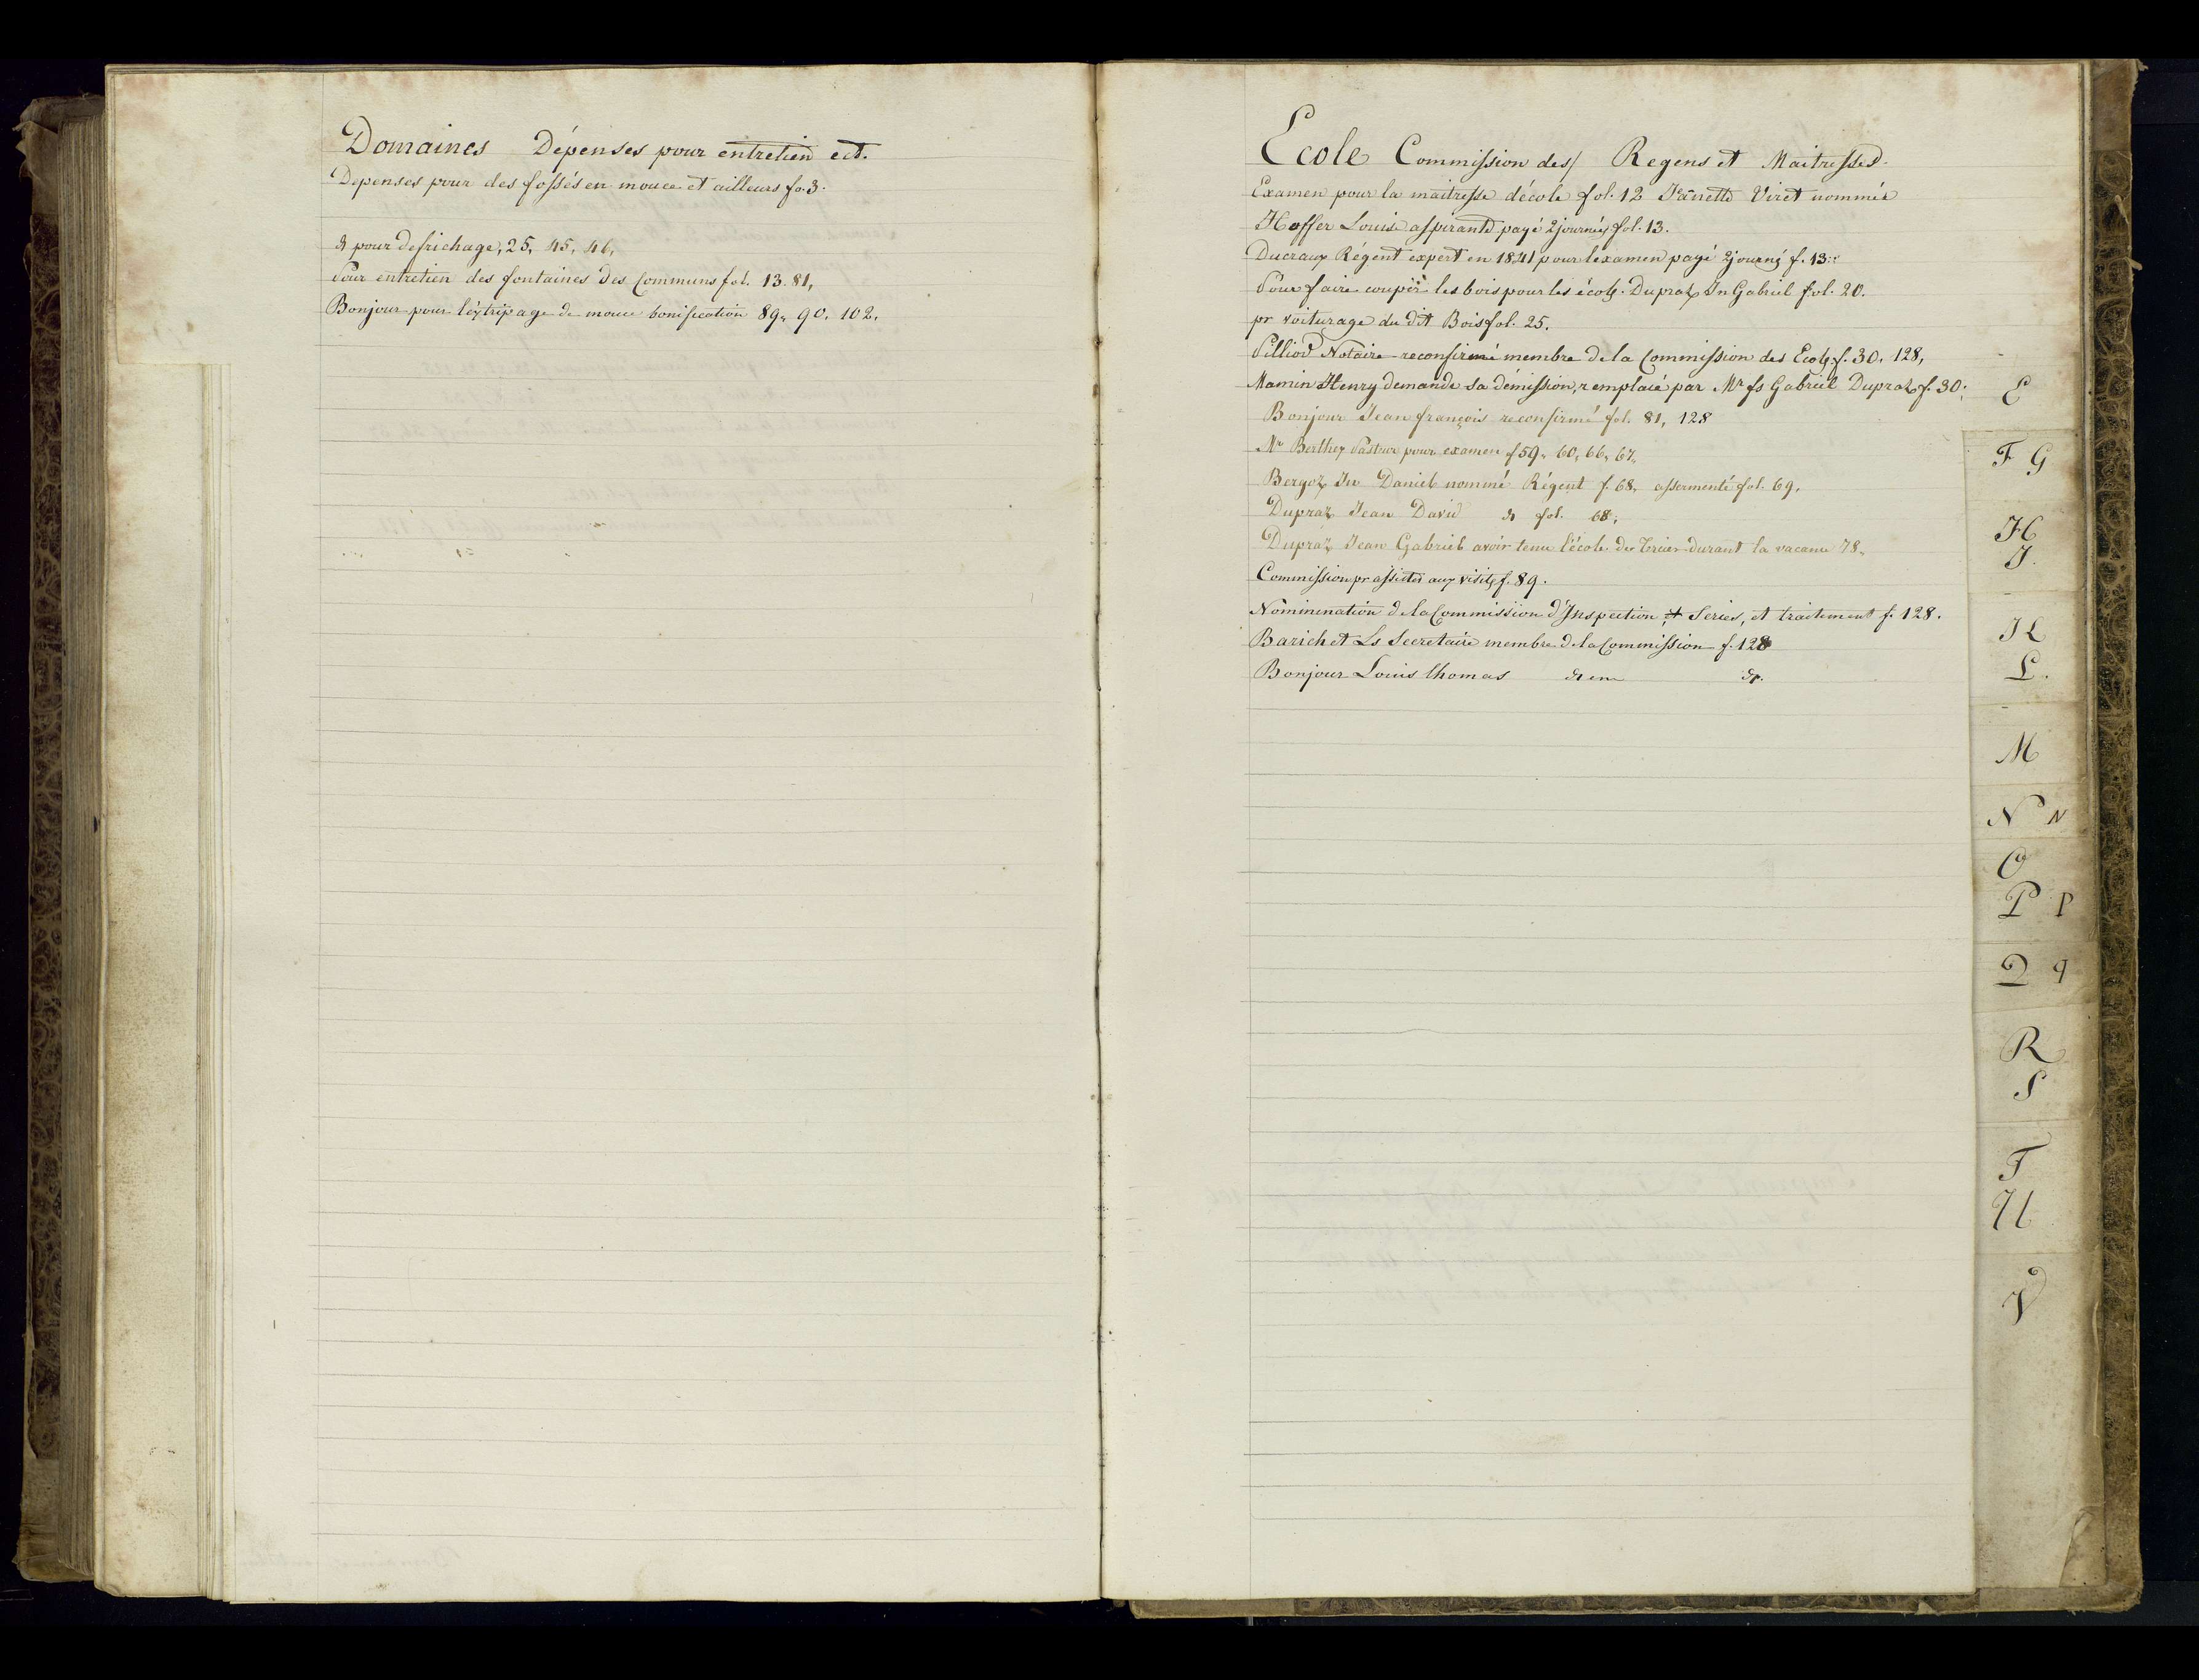 Domaines Dépenses pour entretien ect.
Depenses pour des fossés en mouce et ailleurs fo. 3.
d pour defrichage, 25, 45, 46,
Pour entretien des fontaines des Communs fol. 13. 81,
Bonjour pour l'éxtripage de mouce bonification 89, 90, 102.
Ecole Commission des/ Regens et Maitresses.
Examen pour la maitresse d'école fol. 12 Janette Viret nommée
Hoffer Louise aspirante payé 2 journées fol. 13.
Ducraux Régent expert en 1841 pour lexamen payé 2 journés f. 13.
Pour faire couper les bois pour les écoles. Dupraz Jn Gabriel fol. 20.
pr voiturage du dit Bois fol. 25.
Pilliod Notaire reconfirmé membre de la Commission des Ecoles f. 30, 128,
Mamin Henry demande sa démission, remplacé par Mr fs Gabriel Dupraz f. 30;
Bonjour Jean françois reconfirmé fol. 81, 128
Mr Berthey Pasteur pour examen f 59, 60, 66, 67,
Bergoz Jn Daniel nommé Régent f. 68, assermenté fol. 69,
Dupraz Jean David d fol. 68;
Dupraz Jean Gabriel avoir tenu l'école de durant la vacance 78,
Commission pr assister aux visites f. 89.
Nominination de la Commission d'Inspection, et Series, et traitement f. 128.
Barichet Ls Secretaire membre de la Commission f. 128
Bonjour Louis thomas d en do.
E
F G
H
J.
K
L.
M
N N
O
P P
Q q
R
S
T
U
V